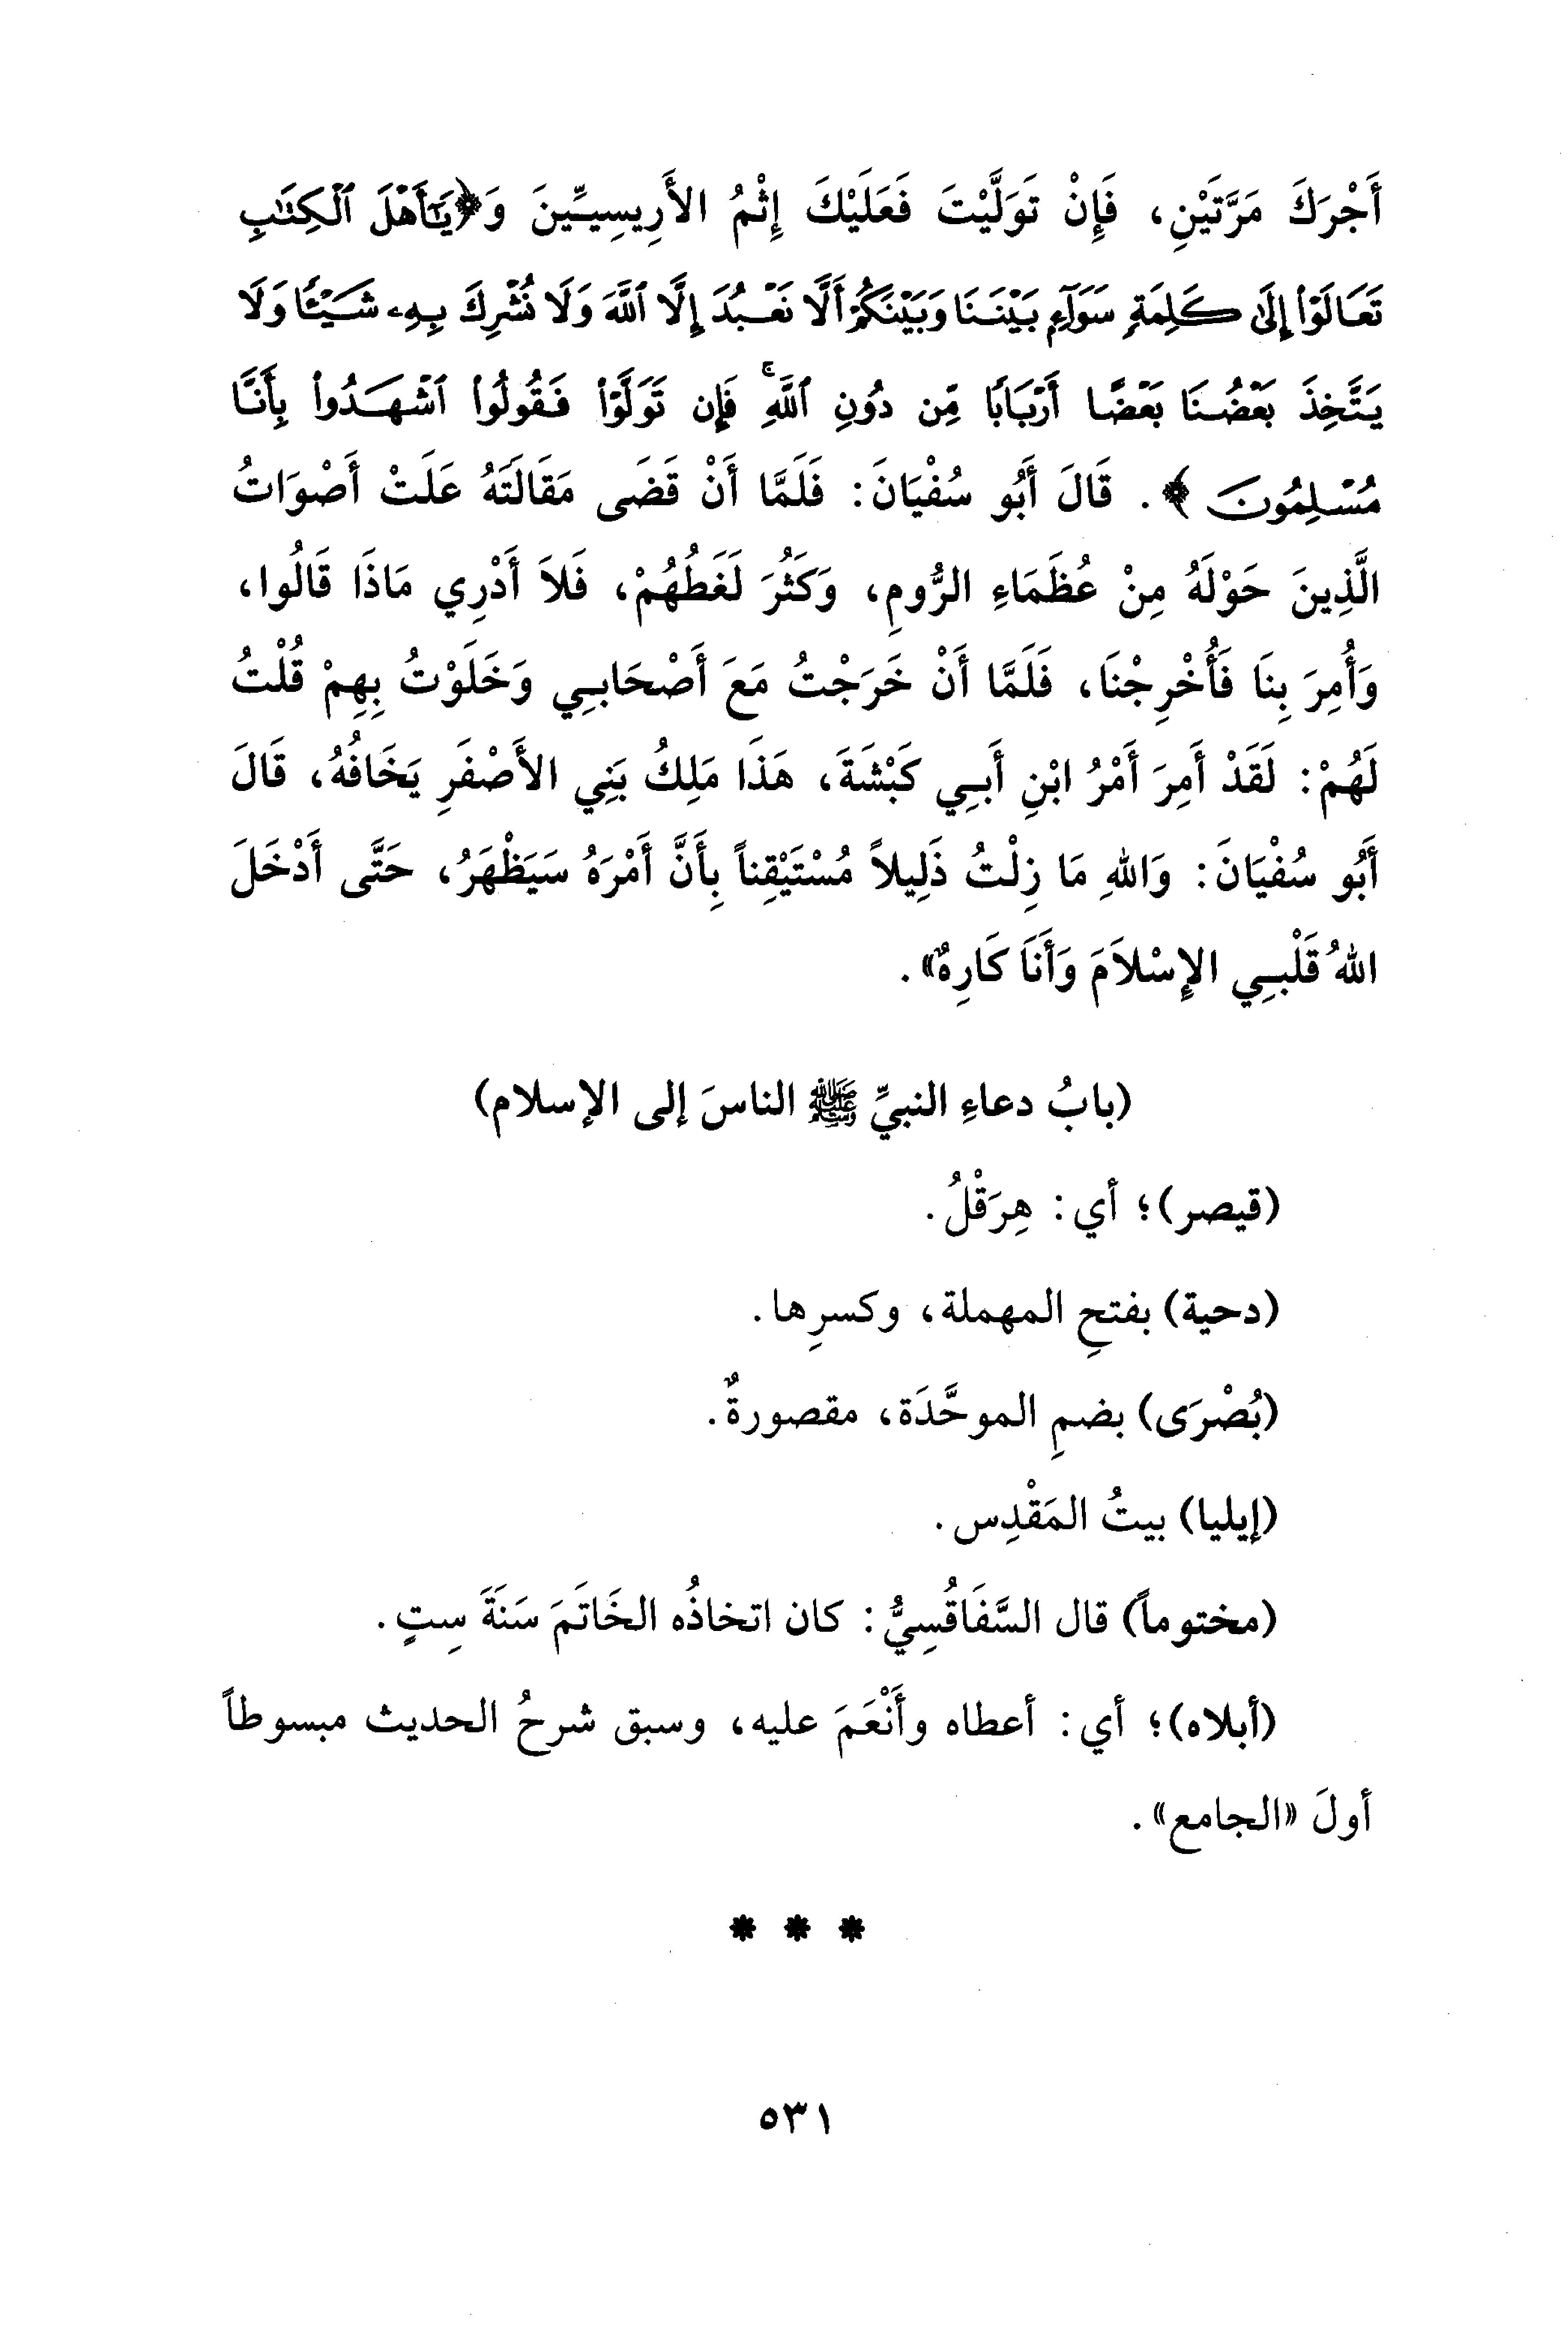 أَجْرَكَ مَرَّتَيْنِ، فَإِنْ تَوَلَّيْتَ فَعَلَيْكَ إِثْمُ الأَرِيسِيِّينَ وَ﴿يَٰٓأَهْلَ ٱلْكِتَٰبِ
تَعَالَوْا۟ إِلَىٰ كَلِمَةٍ سَوَآءٍ بَيْنَنَا وَبَيْنَكُمْ أَلَّا نَعْبُدَ إِلَّا ٱللَّهَ وَلَا نُشْرِكَ بِهِۦ شَيْـًٔا وَلَا
يَتَّخِذَ بَعْضُنَا بَعْضًا أَرْبَابًا مِّن دُونِ ٱللَّهِ ۚ فَإِن تَوَلَّوْا۟ فَقُولُوا۟ ٱشْهَدُوا۟ بِأَنَّا
مُسْلِمُونَ﴾. قَالَ أَبُو سُفْيَانَ: فَلَمَّا أَنْ قَضَى مَقَالَتَهُ عَلَتْ أَصْوَاتُ
الَّذِينَ حَوْلَهُ مِنْ عُظَمَاءِ الرُّومِ، وَكَثُرَ لَغَطُهُمْ، فَلاَ أَدْرِي مَاذَا قَالُوا،
وَأُمِرَ بِنَا فَأُخْرِجْنَا، فَلَمَّا أَنْ خَرَجْتُ مَعَ أَصْحَابِي وَخَلَوْتُ بِهِمْ قُلْتُ
لَهُمْ: لَقَدْ أَمِرَ أَمْرُ ابْنِ أَبِي كَبْشَةَ، هَذَا مَلِكُ بَنِي الأَصْفَرِ يَخَافُهُ، قَالَ
أَبُو سُفْيَانَ: وَاللهِ مَا زِلْتُ ذَلِيلاً مُسْتَيْقِناً بِأَنَّ أَمْرَهُ سَيَظْهَرُ، حَتَّى أَدْخَلَ
اللهُ قَلْبِي الإِسْلاَمَ وَأَنَا كَارِهٌ».
(بابُ دعاءِ النبيِّ ﷺ الناسَ إلى الإسلام)
(قيصر)؛ أي: هِرَقْلُ.
(دحية) بفتحِ المهملة، وكسرِها.
(بُصْرَى) بضمِ الموحَّدَة، مقصورةٌ.
(إيليا) بيتُ المَقْدِس.
(مختوماً) قال السَّفَاقُسِيُّ: كان اتخاذُه الخَاتَمَ سَنَةَ سِتٍ.
(أبلاه)؛ أي: أعطاه وأَنْعَمَ عليه، وسبق شرحُ الحديث مبسوطاً
أولَ «الجامع».
* * *
٥٣١